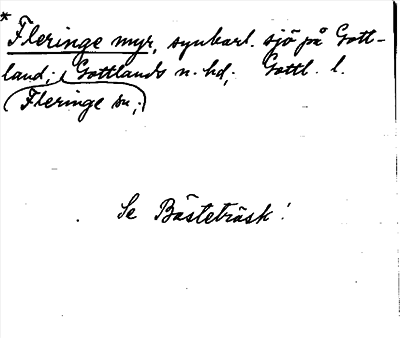 * Fleringe myr, synbarl. sjö på Gott-
land; Gottlands n. hd; Gottl. l.
Fleringe sn;
Se Bästeträsk!